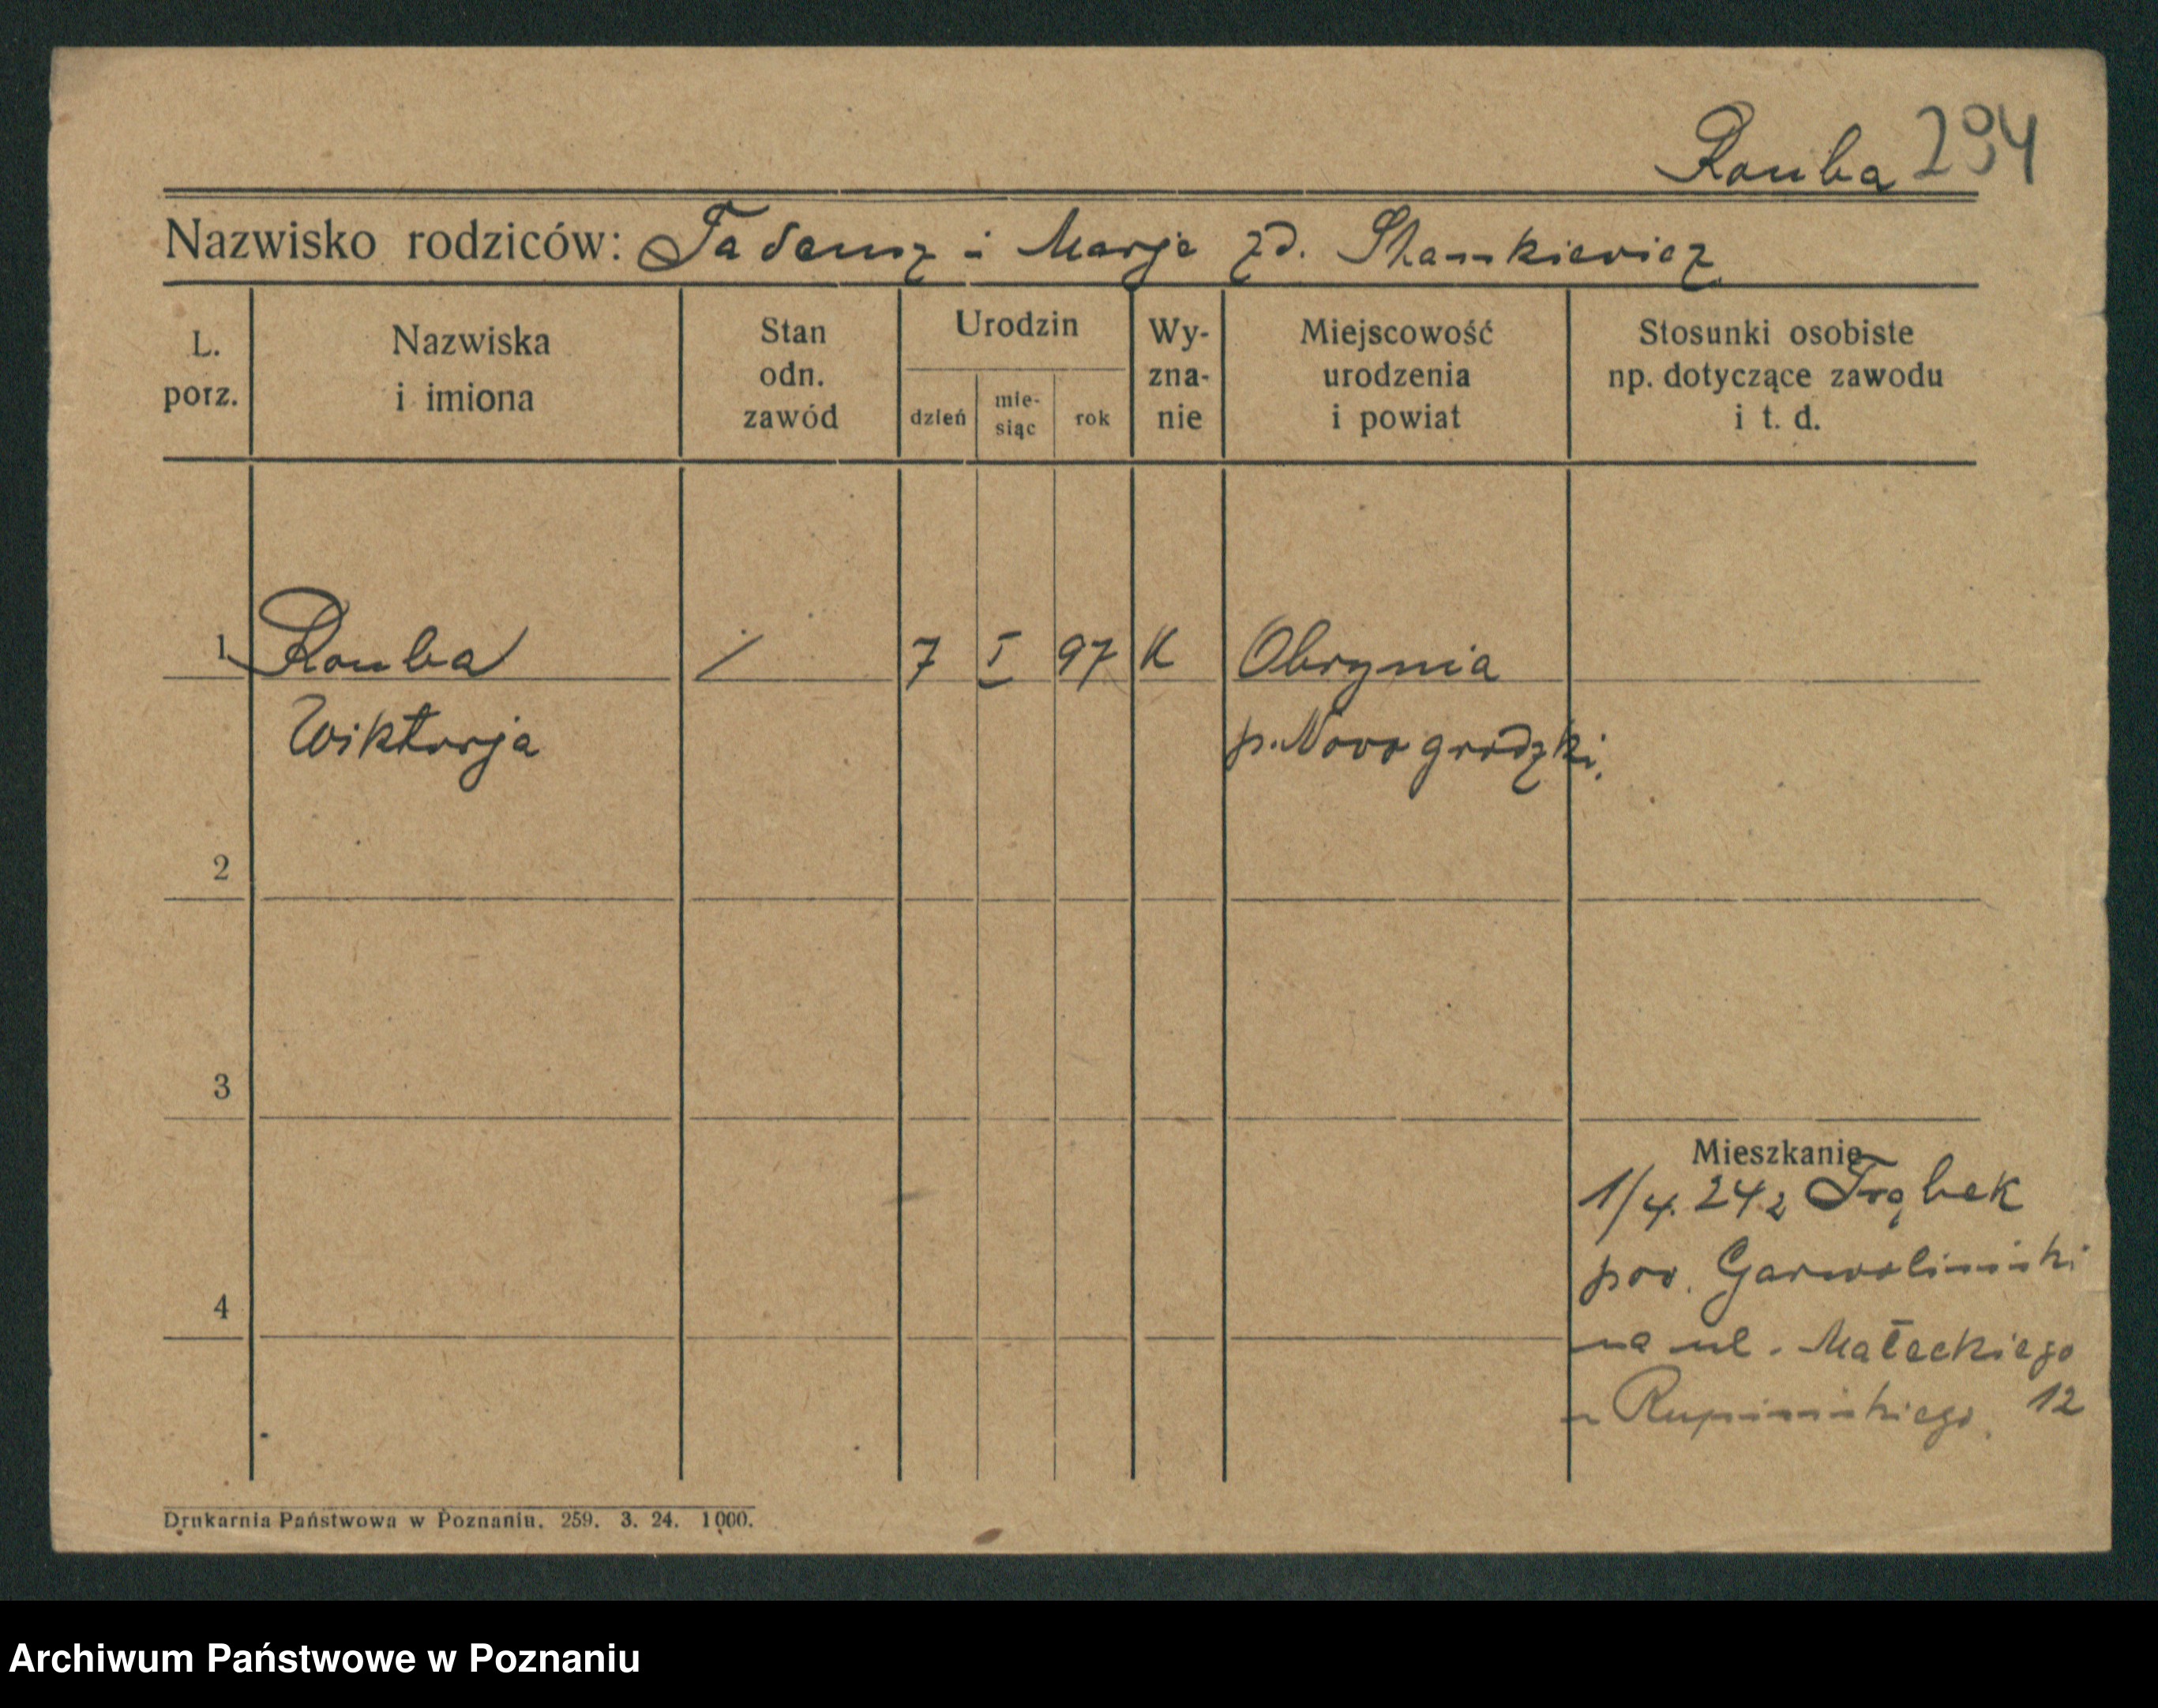 Rouba 294
Nazwisko rodziców: Tadeusz i Marja zd. Stankiewicz
L. porz.
Nazwiska i imiona
Stan odn. zawód
Urodzin
dzień
mie- siąc
rok
Wy- zna- nie
Miejscowość urodzenia i powiat
Stosunki osobiste np. dotyczące zawodu i t. d.
1 Rouba / 7 I 97 K Obrynia
Wiktorja p. Nowogrodzki.
2
3
Mieszkanie
1/4. 24 z Trąbek
pow. Garwoliński
4
na ul. Małeckiego
u Rupińskiego. 12
Drukarnia Państwowa w Poznaniu. 259. 3. 24. 1000.
Archiwum Państwowe w Poznaniu